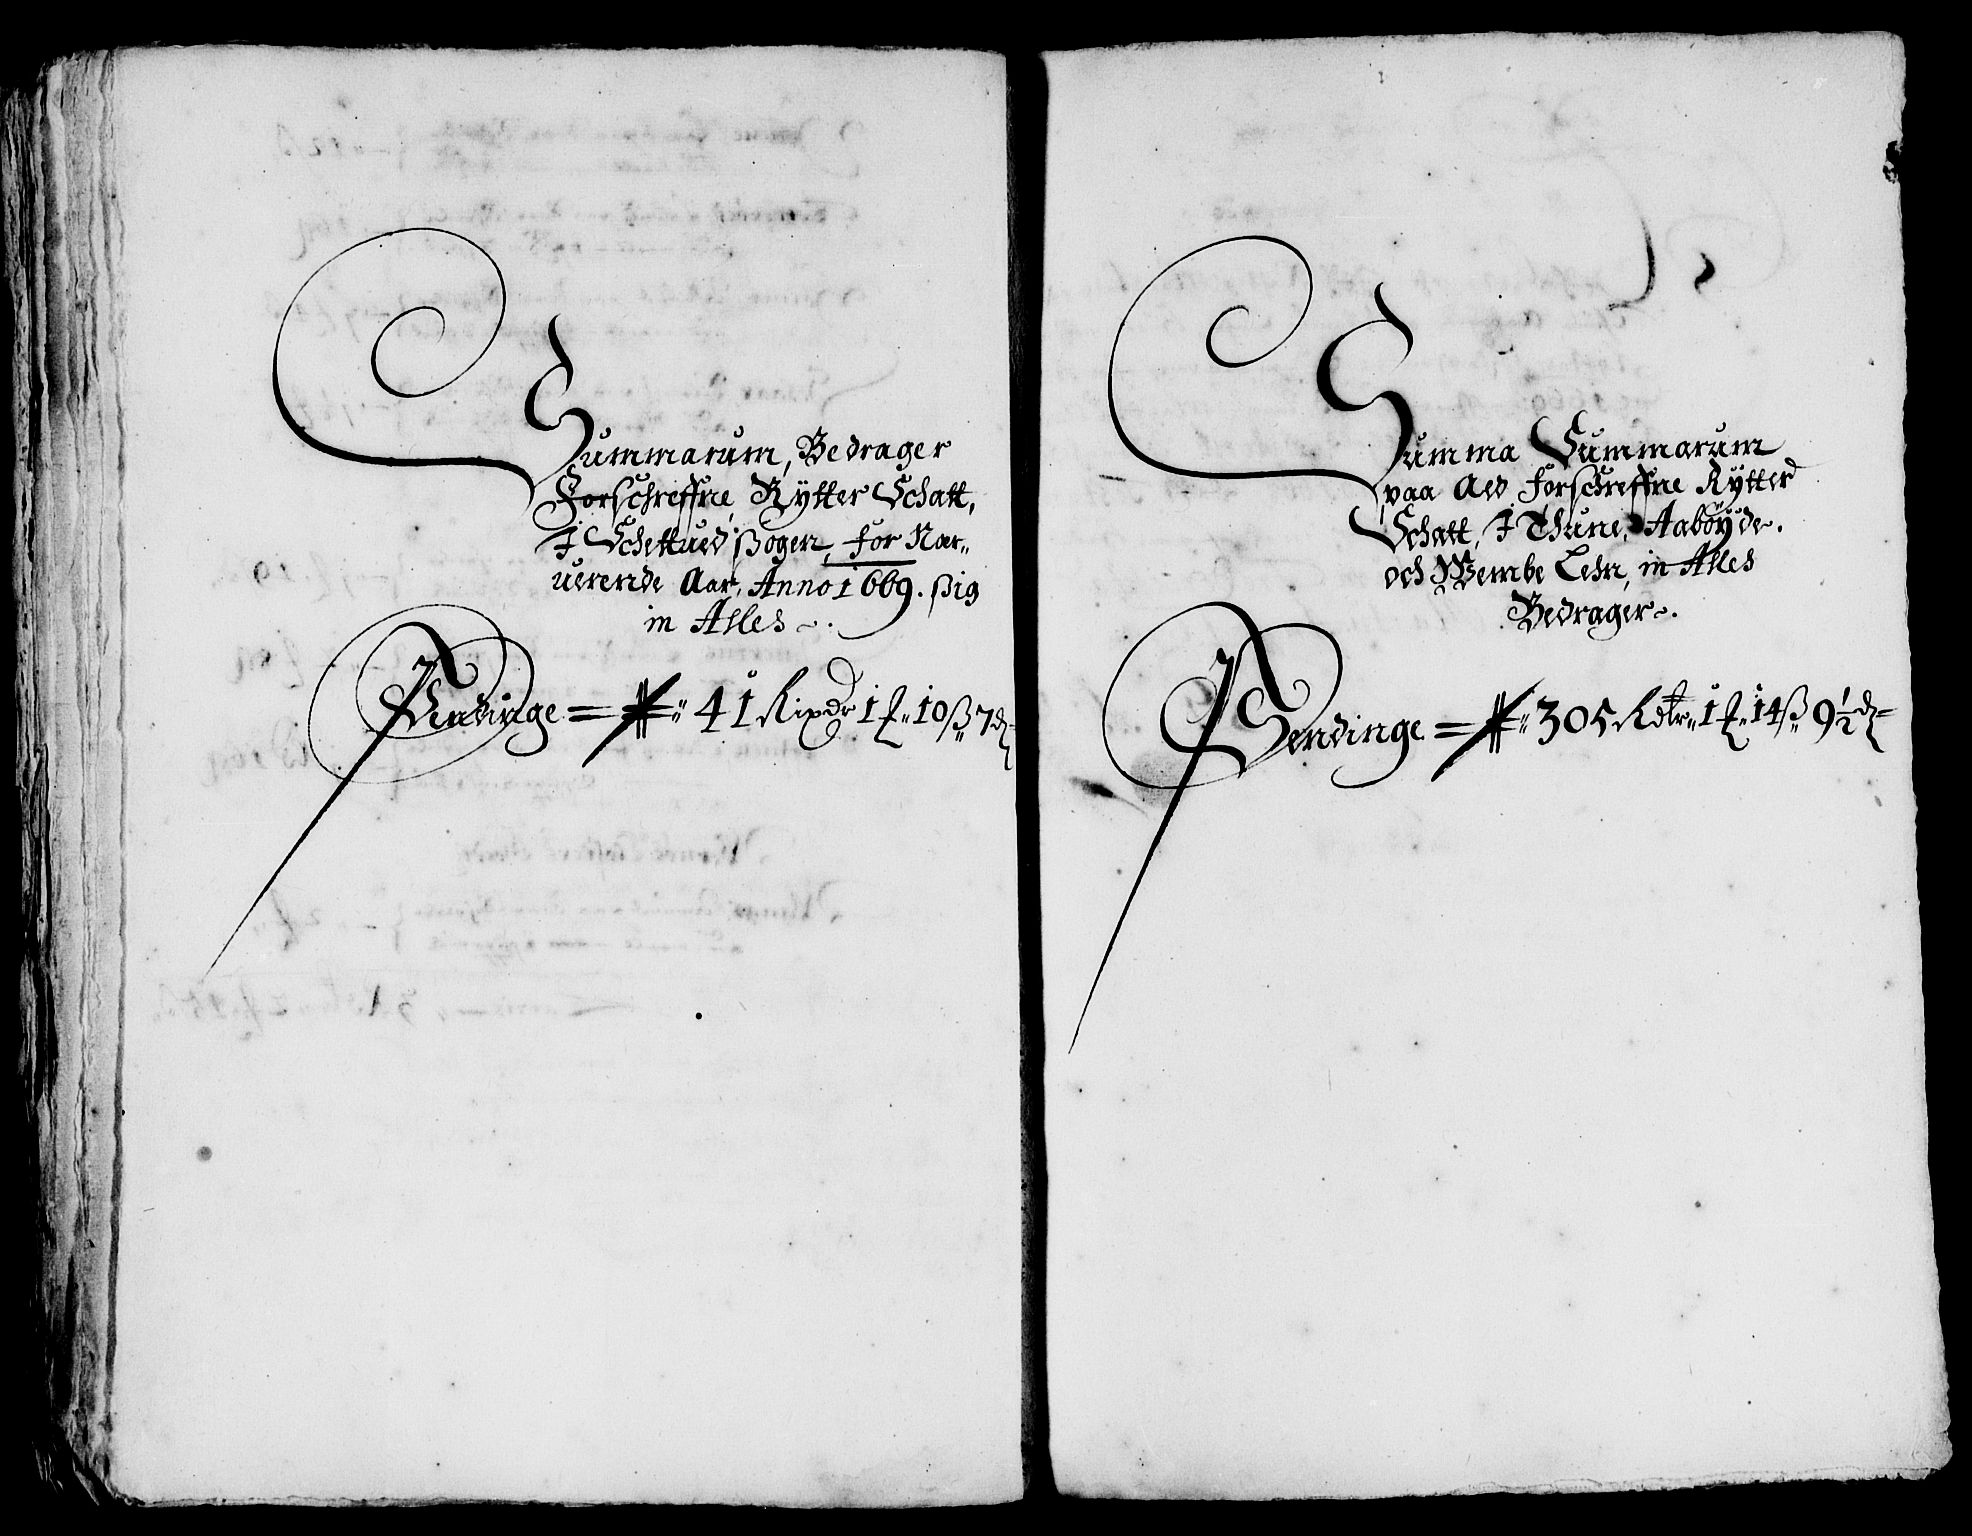 Summarum, Bedrager
Forschreffne, Rytter Schatt,
I Schettued Sogen, for Nær„
uerende Aar, Anno 1669. sig
in Alles ~.
Pendinge = # „ 41 Rixdr 1 ƒ „ 10 ß „ 7 ₰ =
Summa Summarum
paa Ald forschreffne Rytter
Schatt, I Thune, Aabøyde.
och Wembe Lehn, in Alles
Bedrager ~.
Pendinge = # „ 305 Rdlr „ 1 ƒ „ 14 ß „ 9 ½ ₰ =